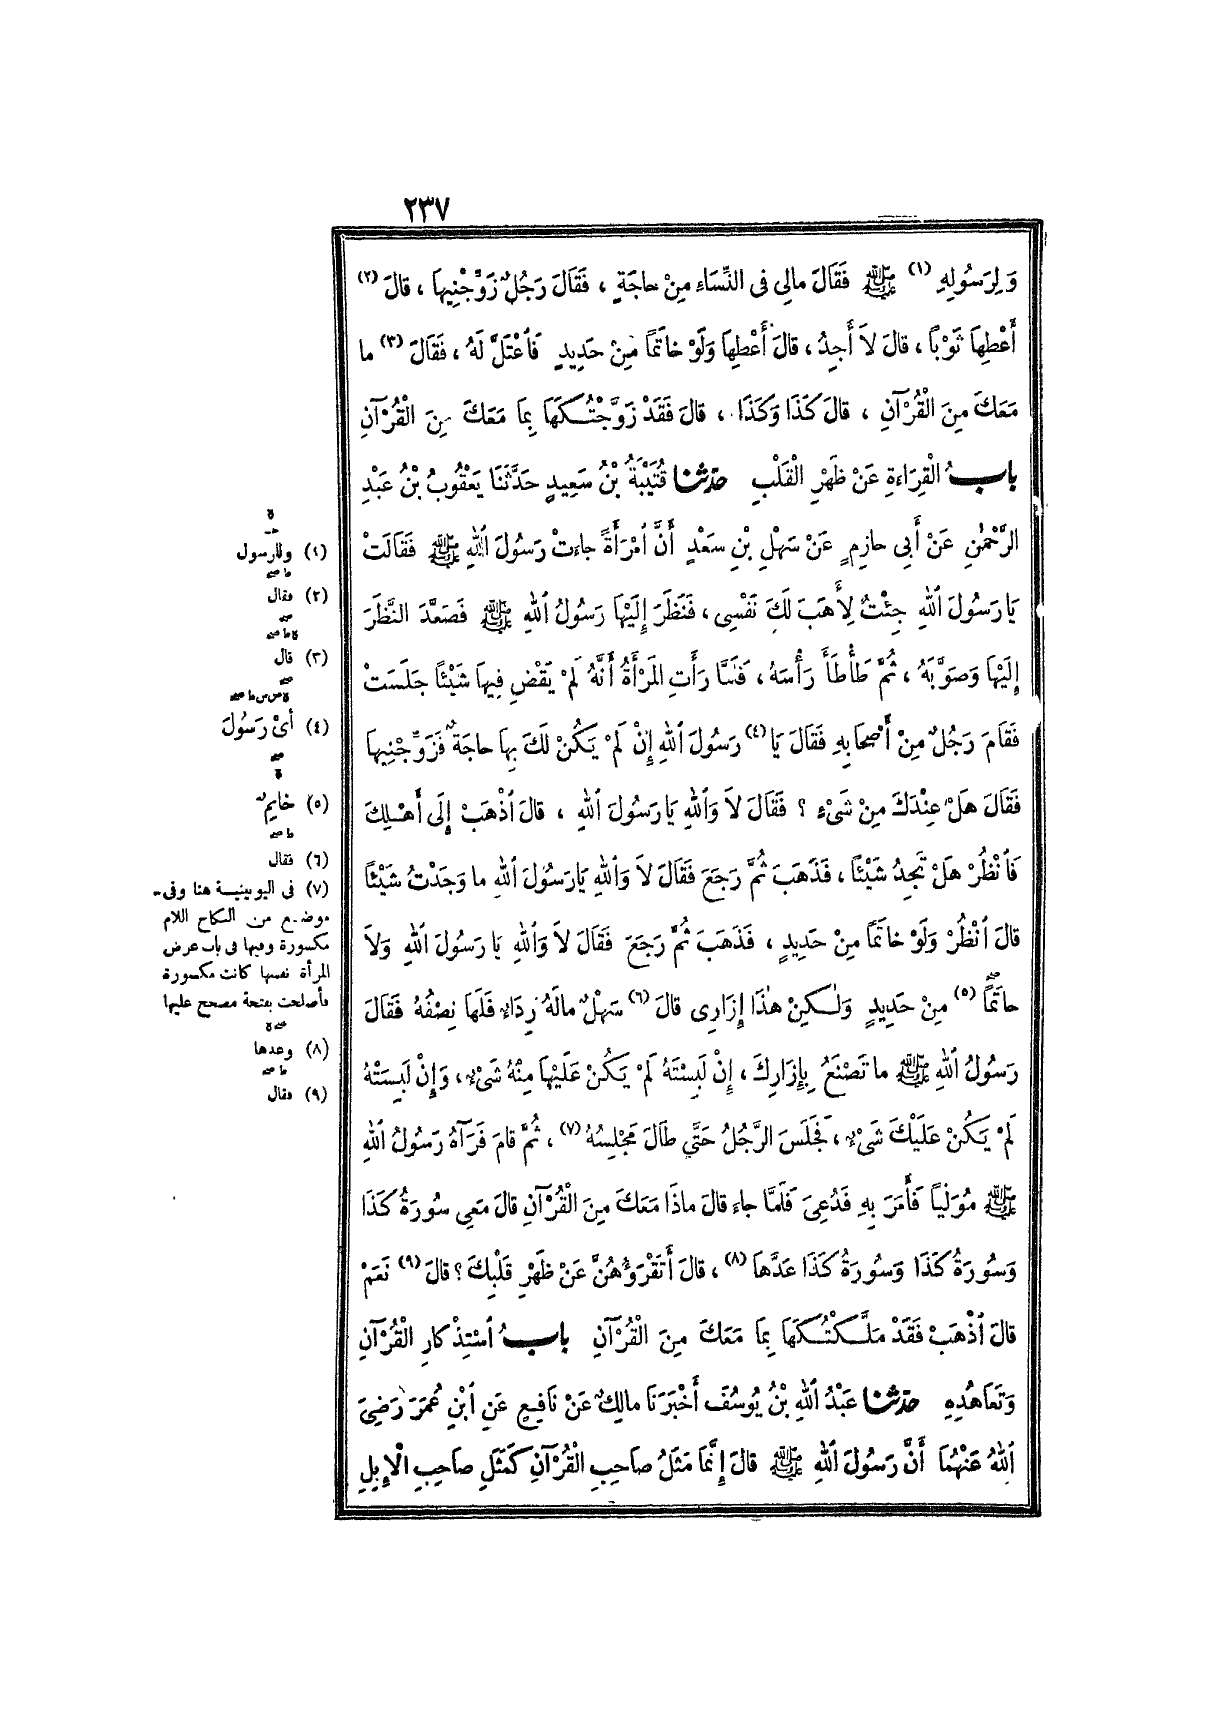 ٢٣٧
وَلِرَسُولِهِ (١) ﷺ فَقَالَ مَالِي فِي النِّسَاءِ مِنْ حَاجَةٍ ، فَقَالَ رَجُلٌ زَوِّجْنِيهَا ، قالَ (٢)
أَعْطِهَا ثَوْبًا ، قالَ لاَ أَجِدُ ، قالَ أَعْطِهَا وَلَوْ خاتَمًا مِنْ حَدِيدٍ فَاعْتَلَّ لَهُ ، فَقَالَ (٣) ما
مَعَكَ مِنَ الْقُرْآنِ ، قالَ كَذَا وَكَذَا ، قالَ فَقَدْ زَوَّجْتُكَهَا بِمَا مَعَكَ مِنَ الْقُرْآنِ
بابُ الْقِرَاءَةِ عَنْ ظَهْرِ الْقَلْبِ حدثنا قُتَيْبَةُ بْنُ سَعِيدٍ حَدَّثَنَا يَعْقُوبُ بْنُ عَبْدِ
الرَّحْمٰنِ عَنْ أَبِي حازِمٍ عَنْ سَهْلِ بْنِ سَعْدٍ أَنَّ امْرَأَةً جاءَتْ رَسُولَ اللهِ ﷺ فَقَالَتْ
يَا رَسُولَ اللهِ جِئْتُ لِأَهَبَ لَكَ نَفْسِي ، فَنَظَرَ إِلَيْهَا رَسُولُ اللهِ ﷺ فَصَعَّدَ النَّظَرَ
إِلَيْهَا وَصَوَّبَهُ ، ثُمَّ طَأْطَأَ رَأْسَهُ ، فَلَمَّا رَأَتِ المَرْأَةُ أَنَّهُ لَمْ يَقْضِ فِيهَا شَيْئًا جَلَسَتْ
فَقَامَ رَجُلٌ مِنْ أَصْحَابِهِ فَقَالَ يَا (٤) رَسُولَ اللهِ إِنْ لَمْ يَكُنْ لَكَ بِهَا حاجَةٌ فَزَوِّجْنِيهَا
فَقَالَ هَلْ عِنْدَكَ مِنْ شَيْءٍ ؟ فَقَالَ لاَ وَاللهِ يَا رَسُولَ اللهِ ، قالَ اذْهَبْ إِلَى أَهْلِكَ
فَانْظُرْ هَلْ تَجِدُ شَيْئًا ، فَذَهَبَ ثُمَّ رَجَعَ فَقَالَ لاَ وَاللهِ يَا رَسُولَ اللهِ ما وَجَدْتُ شَيْئًا
قالَ انْظُرْ وَلَوْ خاتَمًا مِنْ حَدِيدٍ ، فَذَهَبَ ثُمَّ رَجَعَ فَقَالَ لاَ وَاللهِ يَا رَسُولَ اللهِ وَلاَ
خاتَمًا (٥) مِنْ حَدِيدٍ وَلٰكِنْ هٰذَا إِزَارِي قالَ (٦) سَهْلٌ مالَهُ رِدَاءٌ فَلَهَا نِصْفُهُ فَقَالَ
رَسُولُ اللهِ ﷺ ما تَصْنَعُ بِإِزَارِكَ ، إِنْ لَبِسْتَهُ لَمْ يَكُنْ عَلَيْهَا مِنْهُ شَيْءٌ ، وَإِنْ لَبِسَتْهُ
لَمْ يَكُنْ عَلَيْكَ شَيْءٌ ، فَجَلَسَ الرَّجُلُ حَتَّى طَالَ مَجْلِسُهُ (٧) ، ثُمَّ قامَ فَرَآهُ رَسُولُ اللهِ
ﷺ مُوَلِّيًا فَأَمَرَ بِهِ فَدُعِيَ فَلَمَّا جاءَ قالَ ماذَا مَعَكَ مِنَ الْقُرْآنِ قالَ مَعِي سُورَةُ كَذَا
وَسُورَةُ كَذَا وَسُورَةُ كَذَا عَدَّهَا (٨) ، قالَ أَتَقْرَؤُهُنَّ عَنْ ظَهْرِ قَلْبِكَ ؟ قالَ (٩) نَعَمْ
قالَ اذْهَبْ فَقَدْ مَلَّكْتُكَهَا بِمَا مَعَكَ مِنَ الْقُرْآنِ بابُ اسْتِذْكارِ الْقُرْآنِ
وَتَعَاهُدِهِ حدثنا عَبْدُ اللهِ بْنُ يُوسُفَ أَخْبَرَنَا مالِكٌ عَنْ نَافِعٍ عَنِ ابْنِ عُمَرَ رَضِيَ
اللهُ عَنْهُمَا أَنَّ رَسُولَ اللهِ ﷺ قالَ إِنَّمَا مَثَلُ صَاحِبِ الْقُرْآنِ كَمَثَلِ صَاحِبِ الْإِبِلِ
(١) وللرسول
(٢) فقال
(٣) قال
(٤) أَيْ رَسُولَ
(٥) خاتَمٌ
(٦) فقال
(٧) في اليونينية هنا وفي
موضع من النكاح اللام
مكسورة وفيها في باب عرض
المرأة نفسها كانت مكسورة
فأصلحت بفتحة مصحح عليها
(٨) وعدها
(٩) فقال